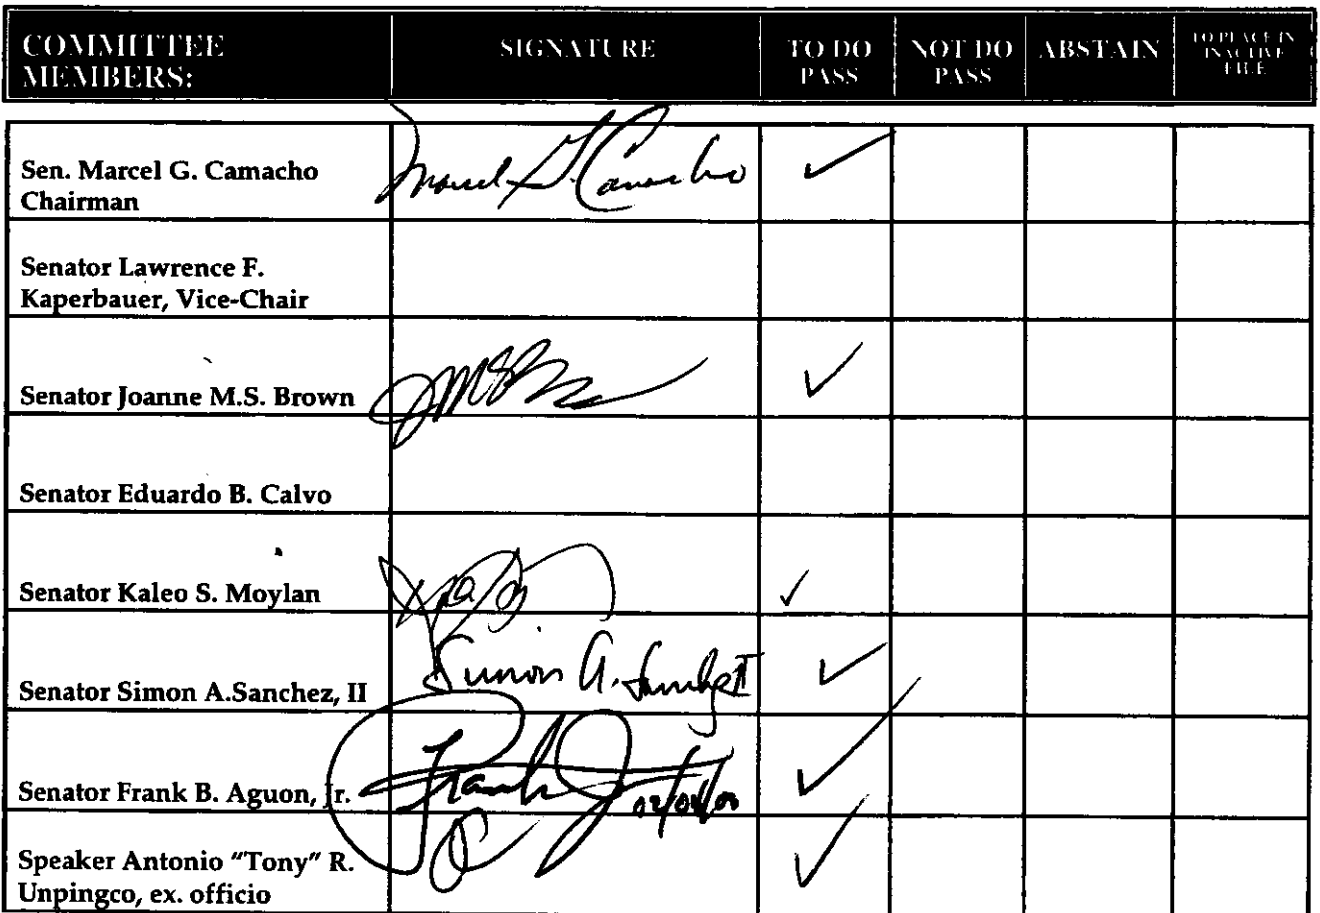 COMMITTEE MEMBERS: SIGNATURE TO DO PASS NOT DO PASS ABSTAIN TO PLACE IN INACTIVE FILE
Sen. Marcel G. Camacho Marcel G. Camacho ✓
Chairman
Senator Lawrence F.
Kaperbauer, Vice-Chair
Senator Joanne M.S. Brown ✓
Senator Eduardo B. Calvo
Senator Kaleo S. Moylan ✓
Senator Simon A.Sanchez, II Simon A. Sanchez II ✓
Senator Frank B. Aguon, Jr. Frank ✓
Speaker Antonio "Tony" R. ✓
Unpingco, ex. officio